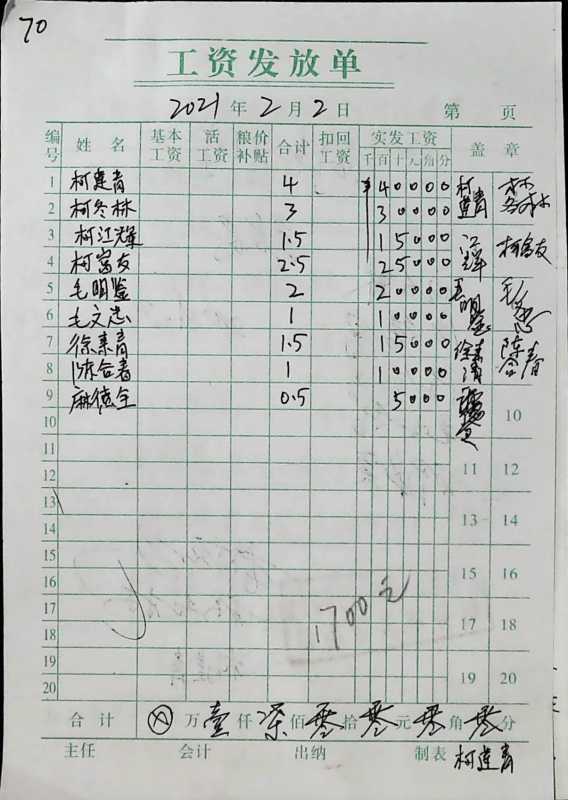 70
工资发放单
2021年2月2日 第 页
编号 姓名 基本工资 活工资 粮价补贴 合计 扣回工资 实发工资 千百十元角分 盖章
1 柯建青 4 ¥40000 柯建青 柯冬林
2 柯冬林 3 30000
3 柯江辉 1.5 15000 江辉 柯富友
4 柯富友 2.5 25000
5 毛明鉴 2 20000 毛明鉴 毛文志
6 毛文志 1 10000
7 徐素青 1.5 15000 徐素青 陈合春
8 陈合春 1 10000
9 麻德全 0.5 5000 10
10
11 11 12
12
13 13 14
14
15 15 16
16
17 1700元 17 18
18
19 19 20
20
合计 ⊗万壹仟柒佰零拾零元零角零分
主任 会计 出纳 制表 柯建青